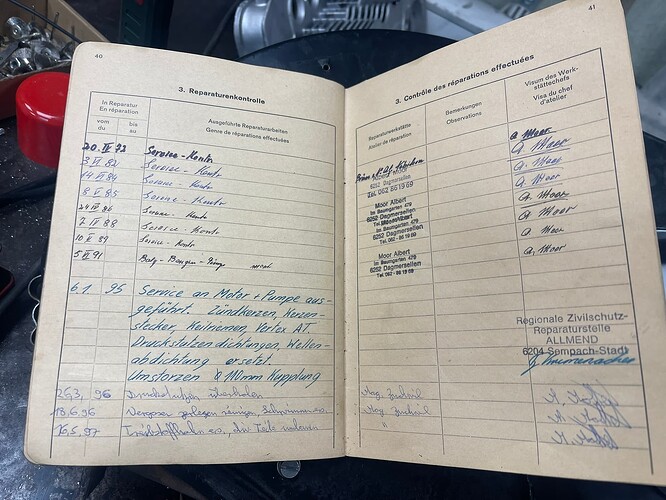 40
3. Reparaturenkontrolle
In Reparatur
En réparation
vom
du
bis
au
Ausgeführte Reparaturarbeiten
Genre de réparation effectuée
20. IV 73 Service-Kontr
3 VI 82 Service-Kontr
14 VI 84 Service-Kontr
8 VI 85 Service-Kontr
24 IV 86 Service-Kontr
7 IV 88 Service-Kontr
10 V 89 Service-Kontr
5 VI 91
6.1. 95 Service an Motor + Pumpe aus-
geführt. Zündkerzen, Kerzen-
stecker, Keilriemen, Vertex AT.
Druckstutzendichtungen, Wellen-
abdichtung ersetzt.
Umstorzen à 110mm Kupplung
96
18.6.96 Vergaser reinigen, Schwimmer
16.5.97 div Teile
41
3. Contrôle des réparations effectuées
Reparaturwerkstätte
Atelier de réparation
Bemerkungen
Observations
Visum des Werk-
stättechefs
Visa du chef
d'atelier
Albert Moor
6252 Dagmersellen
Tel. 062 86 19 69
Moor Albert
Im Baumgarten 479
6252 Dagmersellen
Tel.
Moor Albert
Im Baumgarten 479
6252 Dagmersellen
Tel. 062 - 86 19 69
Moor Albert
Im Baumgarten 479
6252 Dagmersellen
Tel. 062 - 86 19 69
A. Moor
A. Moor
A. Moor
A. Moor
A. Moor
A. Moor
A. Moor
A. Moor
Regionale Zivilschutz-
Reparaturstelle
ALLMEND
6204 Sempach-Stadt